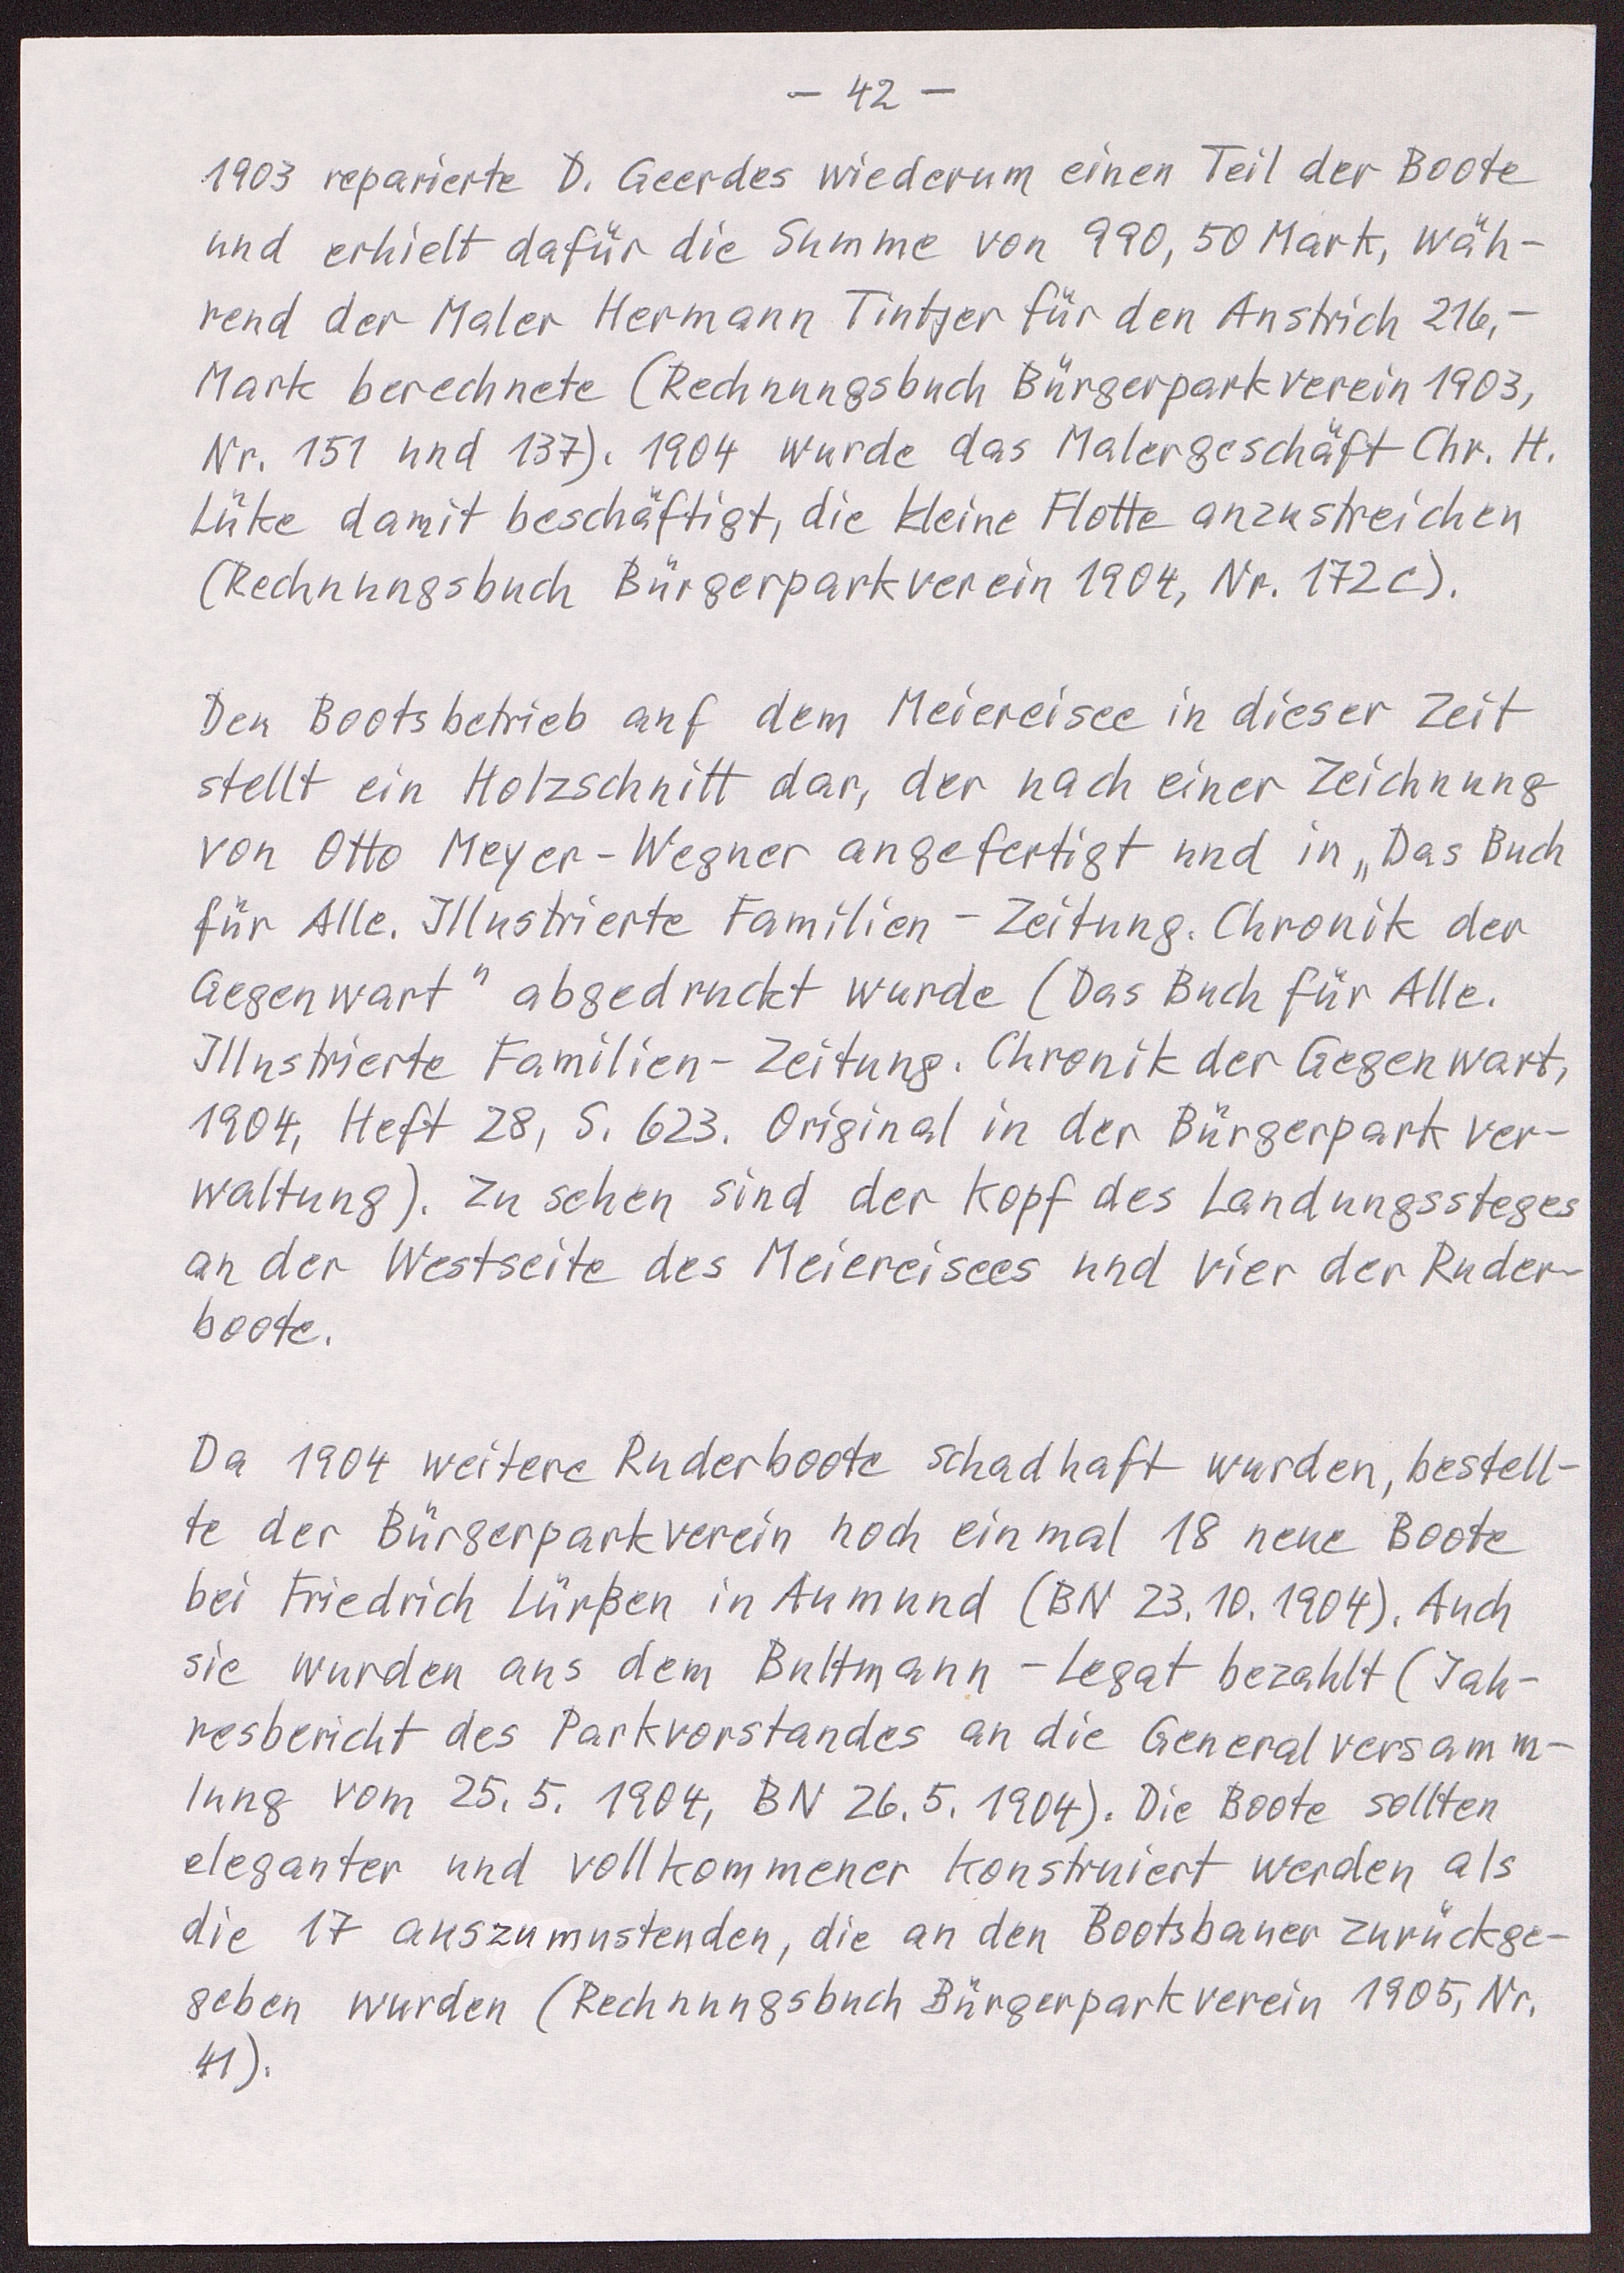 – 42 –
1903 reparierte D. Geerdes wiederum einen Teil der Boote
und erhielt dafür die Summe von 990,50 Mark, wäh-
rend der Maler Hermann Tintjer für den Anstrich 216,-
Mark berechnete (Rechnungsbuch Bürgerparkverein 1903,
Nr. 151 und 137). 1904 wurde das Malergeschäft Chr. H.
Lüke damit beschäftigt, die kleine Flotte anzustreichen
(Rechnungsbuch Bürgerparkverein 1904, Nr. 172c).
Den Bootsbetrieb auf dem Meiereisee in dieser Zeit
stellt ein Holzschnitt dar, der nach einer Zeichnung
von Otto Meyer-Wegner angefertigt und in „Das Buch
für Alle. Illustrierte Familien-Zeitung. Chronik der
Gegenwart" abgedruckt wurde (Das Buch für Alle.
Illustrierte Familien-Zeitung. Chronik der Gegenwart,
1904, Heft 28, S. 623. Original in der Bürgerparkver-
waltung). Zu sehen sind der Kopf des Landungssteges
an der Westseite des Meiereisees und vier der Ruder-
boote.
Da 1904 weitere Ruderboote schadhaft wurden, bestell-
te der Bürgerparkverein noch einmal 18 neue Boote
bei Friedrich Lürßen in Aumund (BN 23.10.1904). Auch
sie wurden aus dem Bultmann-Legat bezahlt (Jah-
resbericht des Parkvorstandes an die Generalversamm-
lung vom 25.5.1904, BN 26.5.1904). Die Boote sollten
eleganter und vollkommener konstruiert werden als
die 17 auszumustenden, die an den Bootsbauer zurückge-
geben wurden (Rechnungsbuch Bürgerparkverein 1905, Nr.
41).